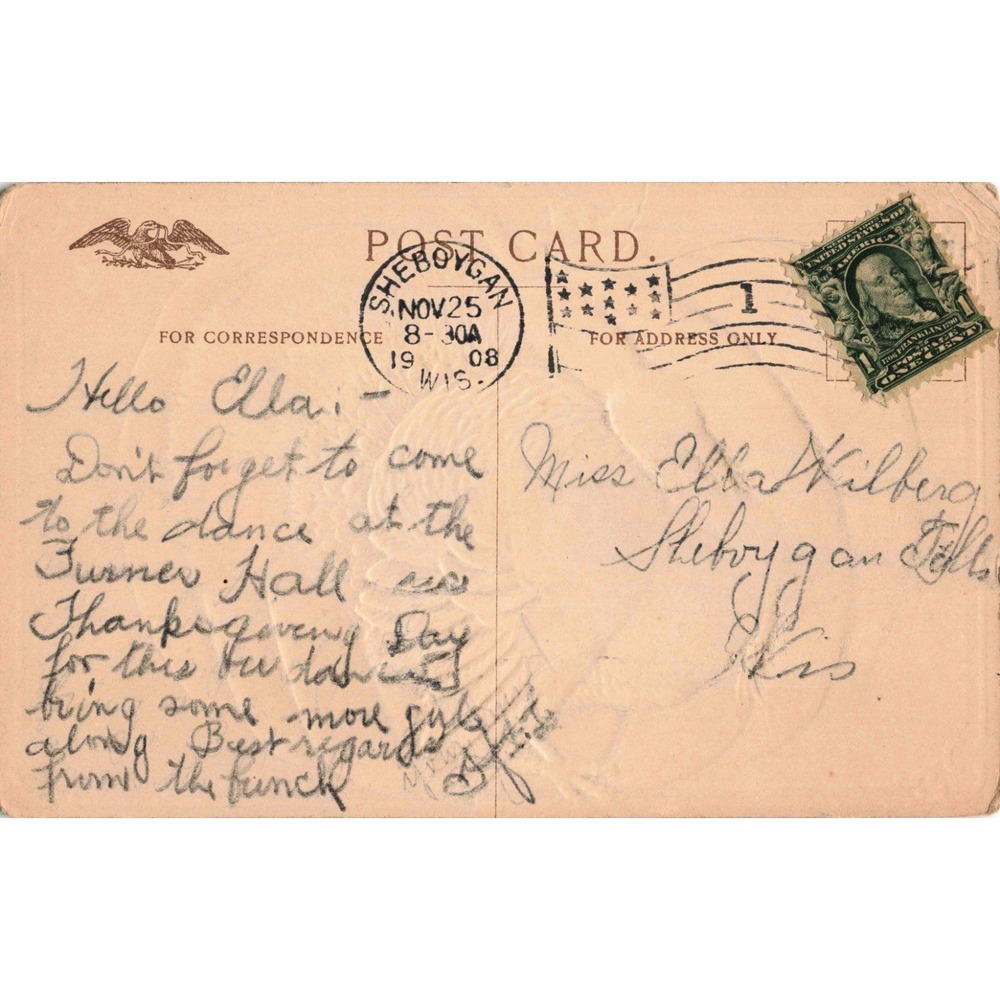 POST CARD.
SHEBOYGAN
NOV 25
8-30A
1908
WIS.
1
UNITED STATES OF
AMERICA
FRANKLIN
POSTAGE
1 ONE CENT 1
FOR CORRESPONDENCE
FOR ADDRESS ONLY
Hello Ella:-
Don't forget to come
to the dance at the
Turner Hall on
Thanksgiving Day
for this
bring some more girls
along Best regards
from the bunch
Miss Ella Wilberg
Sheboygan Falls
Wis